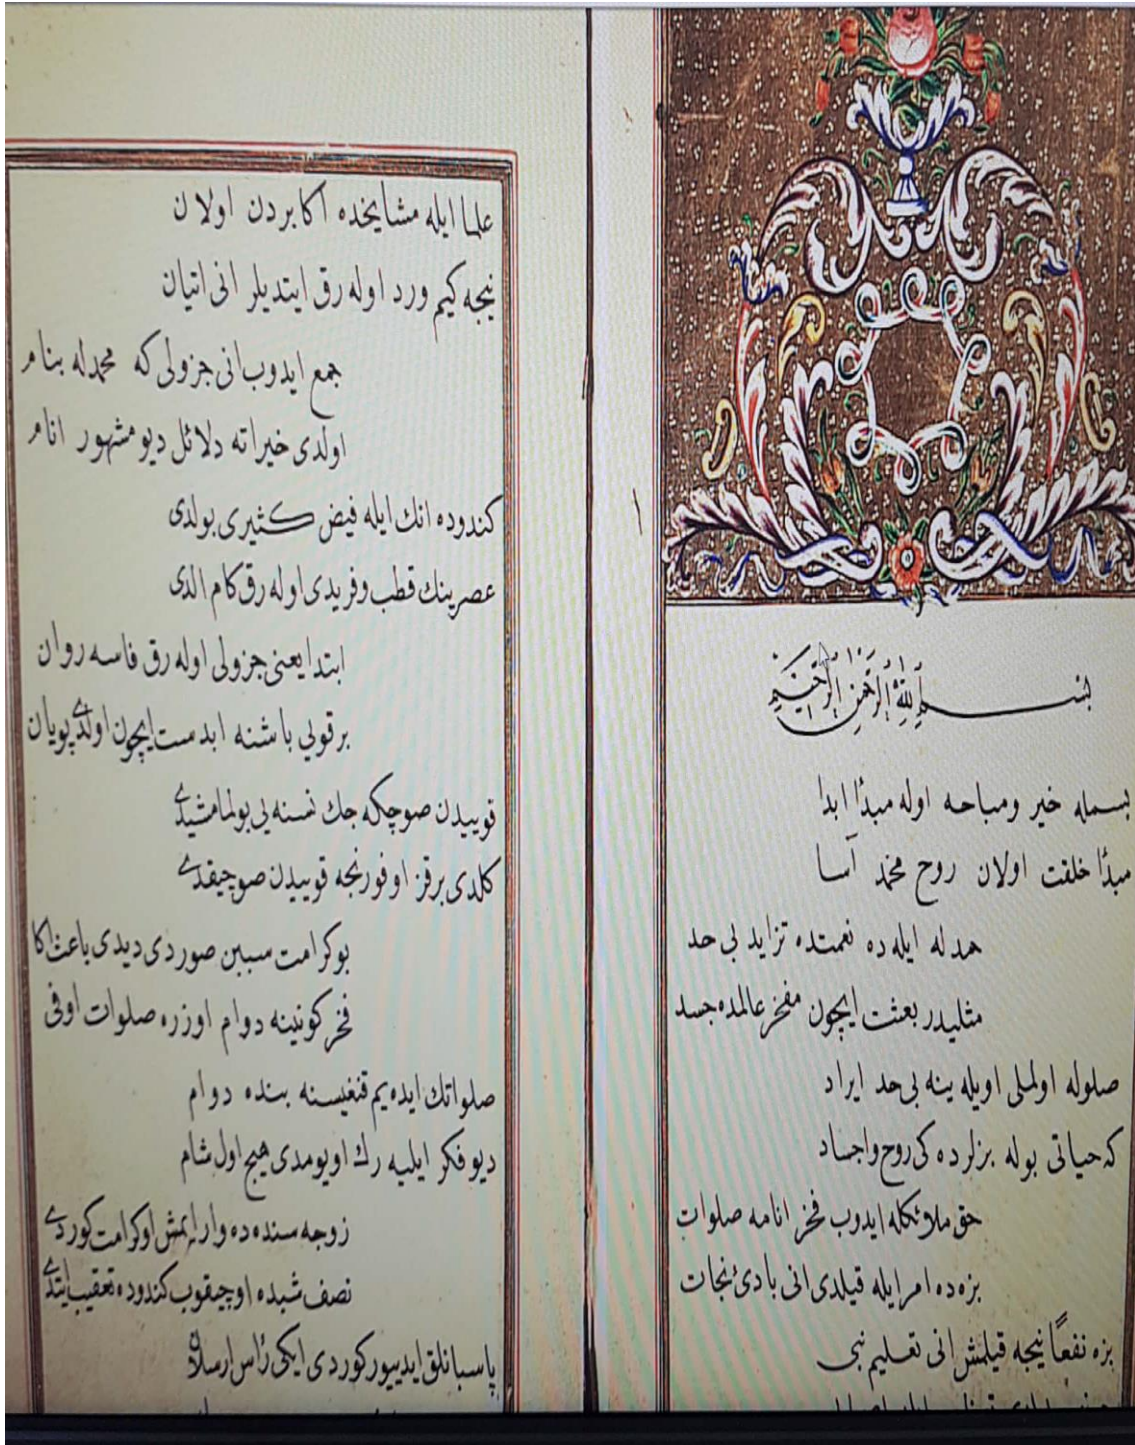 بسم الله الرحمن الرحيم
بسمله خير ومباحه اوله مبدأ ابدا
مبدأ خلقت اولان روح محمد آسا
حمد له ايله ده نعمتده تزايد بی حد
مثليدر بعثت ايچون مفخر عالمده جسد
صلوله اولملی اويله ينه بی حد ايراد
كه حياتی بوله بزلرده كی روح واجساد
حق ملائكله ايدوب فخر انامه صلوات
بزه ده امر ايله قيلدی انی بادیٔ نجات
بزه نفعًا نيجه قيلمش انی تعليم نبی
علما ايله مشايخده اكابردن اولان
نيجه كيم ورد اوله رق ايتديلر انی اتيان
جمع ايدوب انی جزولی كه محمدله بنام
اولدی خيراته دلائل ديو مشهور انام
كندوده انك ايله فيض كثيری بولدی
عصرينك قطب وفريدی اوله رق كام الدی
ابتدا يعنی جزولی اوله رق فاسه روان
بر قويی باشنه ابدست ايچون اولدی پويان
قوييدن صو چكه جك نسنه يی بولمامشيدی
كلدی بر قز اوفورنجه قوييدن صو چيقدی
بو كرامت سببن صوردی ديدی باعث اكا
فخر كونينه دوام اوزره صلوات اوفی
صلواتك ايده يم قنغيسنه بنده دوام
ديو فكر ايليه رك اويومدی هيچ اول شام
زوجه سنده ده وار ايمش او كرامت كوردی
نصف شبده او چيقوب كندوده تعقيب ايتدی
پاسبانلق ايدييور كوردی ايكی رأس ارسلان